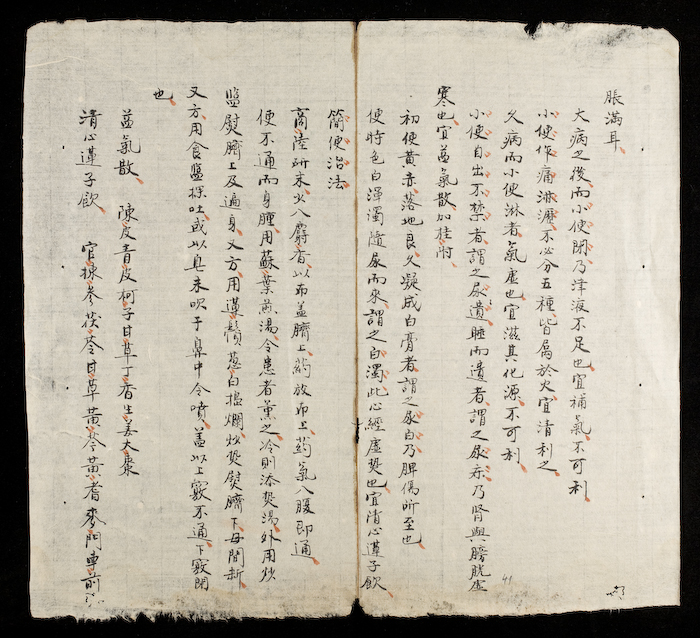 脹滿耳
大病之後而小便閉乃津液不足也宜補氣不可利
小便作痛淋瀝不必分五種皆屬於火宜清利之
久病而小便淋者氣虛也宜滋其化源不可利
小便自出不禁者謂之尿遺睡而遺者謂之尿床乃腎與膀胱虛
寒也宜益氣散加桂附
初便黃赤落地良久凝成白膏者謂之尿白乃脾傷所至也
便時色白渾濁隨尿而來謂之白濁此心經虛熱也宜清心蓮子飲
簡便治法
商陸研末少入麝香以布盖臍上葯放布上葯氣入腹即通
便不通而身腫用蘇葉煎湯令患者薰之冷則添熱湯外用炒
盐熨臍上及遍身又方用連鬚葱白搗爛炒熱熨臍下毋間断
又方用食盬探吐或以皂末吹于鼻中令噴盖以上竅不通下竅閉
也
益氣散 陳皮青皮柯子甘草丁香生姜大棗
清心蓮子飲 官揀參茯苓甘草黃芩黃耆麥門車前
41